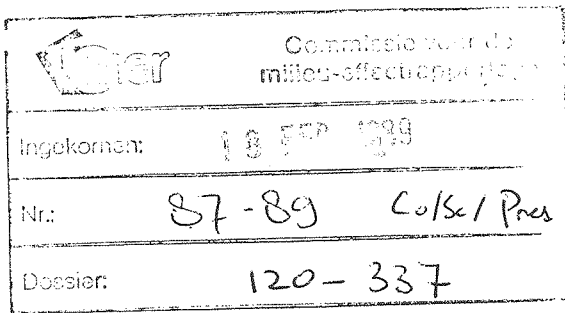 mer
Commissie voor de
milieu-effectrapportage
Ingekomen: 18 FEB 1999
Nr.: 87-89 Co/Sc/
Dossier: 120-337